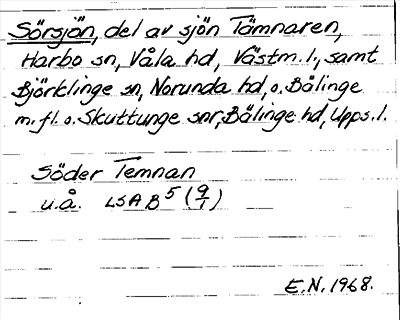 Sörsjön, del av sjön Tämnaren,
Harbo sn, Våla hd, Västm. l., samt
Björklinge sn, Norunda hd, o. Bälinge
m. fl. o. Skuttunge snr, Bälinge hd, Upps. l.
Söder Temnan
u.å. LSA B5 (9/1)
E.N. 1968.